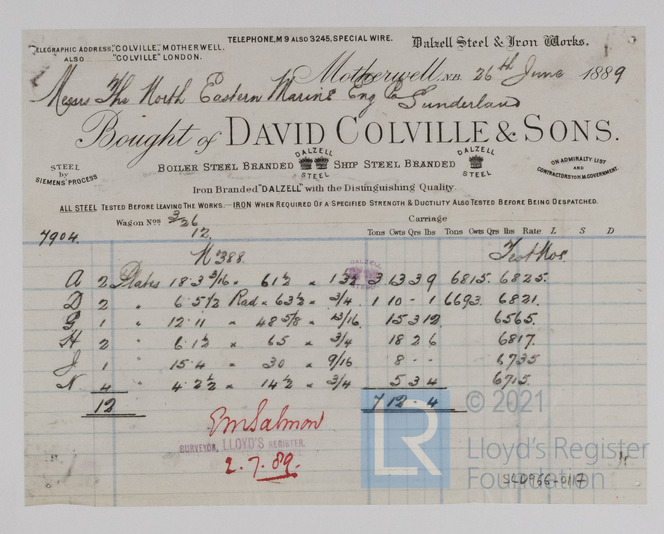 TELEPHONE, M 9 ALSO 3245, SPECIAL WIRE.
TELEGRAPHIC ADDRESS, "COLVILLE", MOTHERWELL.
ALSO "COLVILLE" LONDON.
Dalzell Steel & Iron Works.
Motherwell, N.B. 26th June 1889
Messrs The North Eastern Marine Eng Co Sunderland
Bought of DAVID COLVILLE & SONS.
STEEL by SIEMENS' PROCESS
BOILER STEEL BRANDED DALZELL STEEL SHIP STEEL BRANDED DALZELL STEEL
ON ADMIRALTY LIST AND CONTRACTORS TO H.M. GOVERNMENT.
Iron Branded "DALZELL" with the Distinguishing Quality.
ALL STEEL TESTED BEFORE LEAVING THE WORKS. — IRON WHEN REQUIRED OF A SPECIFIED STRENGTH & DUCTILITY ALSO TESTED BEFORE BEING DESPATCHED.
Wagon Nos 3/26 Carriage
7904. 12. Tons Cwts Qrs lbs Tons Cwts Qrs lbs Rate L S D
No 388. Test Nos.
A 2 Plates 18·3 5/16 × 61 1/2 × 1 3/32 3 13 3 9 6815. 6825.
D 2 " 6·5 1/2 Rad × 63 1/2 × 3/4 1 10 - 1 6693. 6821.
G 1 " 12·11 × 48 5/8 × 13/16 15 3 12 6565.
H 2 " 6·1 1/2 × 65 × 3/4 18 2 6 6817.
J 1 " 15·4 × 30 × 9/16 8 - - 6735
N 4 " 4·2 1/2 × 14 1/2 × 3/4 5 3 4 6715.
12 7 12 · 4
PM Salmon
SURVEYOR, LLOYD'S REGISTER.
2.7.89.
LR
© 2021
Lloyd's Register
Foundation
SLD966-0117